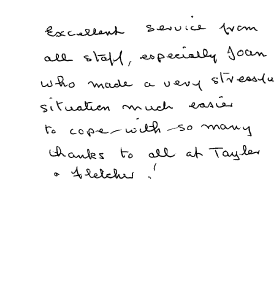 Excellent service from
all staff, especially Joan
who made a very stressful
situation much easier
to cope-with-so many
thanks to all at Tayler
& Fletcher.!